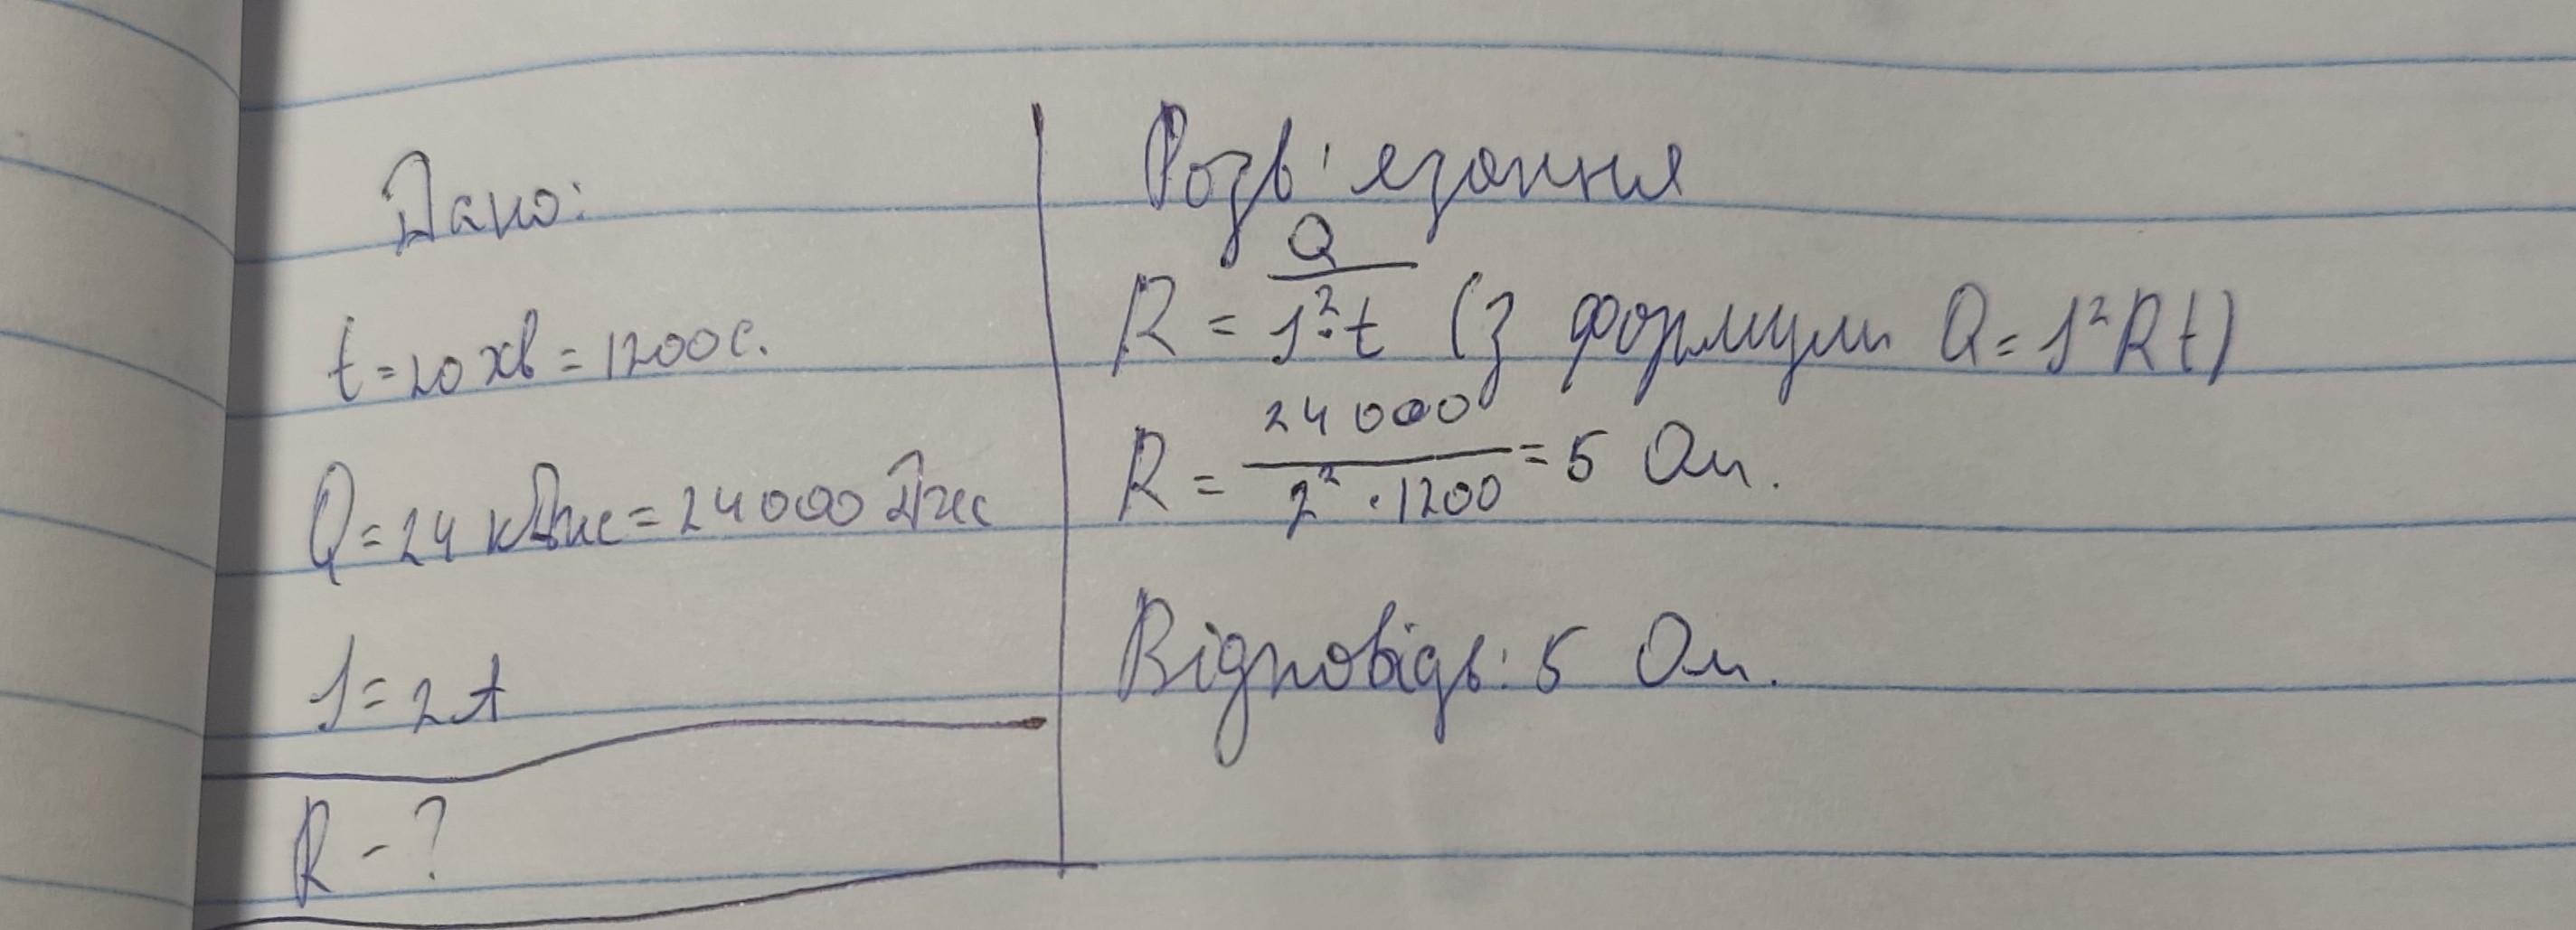 Дано:
t=20 хв = 1200 с.
Q=24 кДж = 24000 Дж
I=2A
R - ?
Розв'язання
R = Q / I²·t (з формули Q = I²Rt)
R = 24 000 / 2² · 1200 = 5 Ом.
Відповідь: 5 Ом.